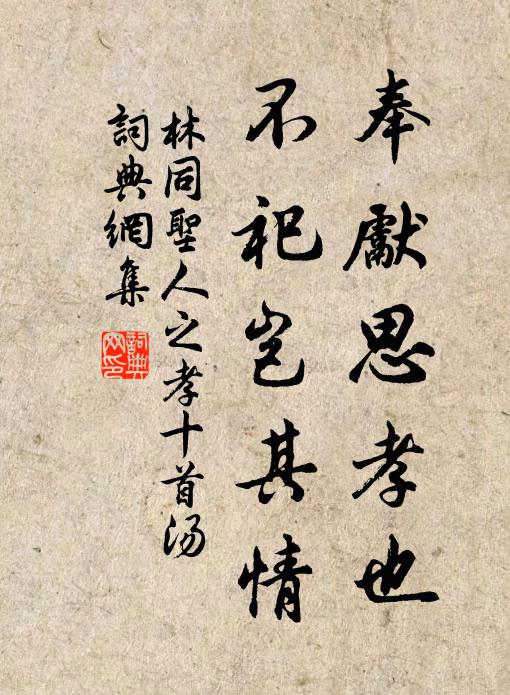 奉獻思孝也
不祀豈其情
林同聖人之孝十首湯
詞典網集
詞典網印